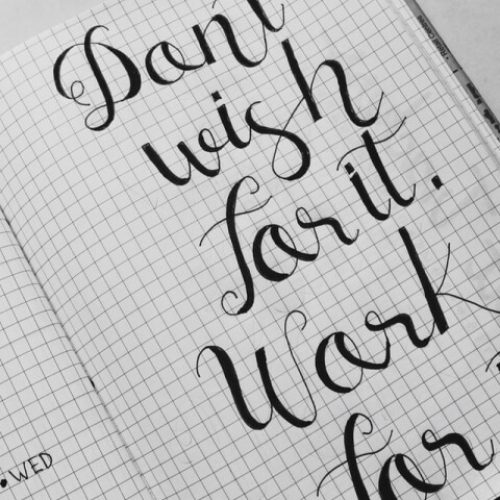 Don't
wish
for it.
Work
for
• WED